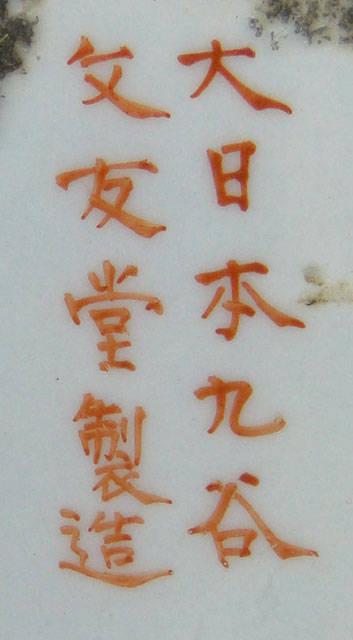 大日本九谷
文友堂製造